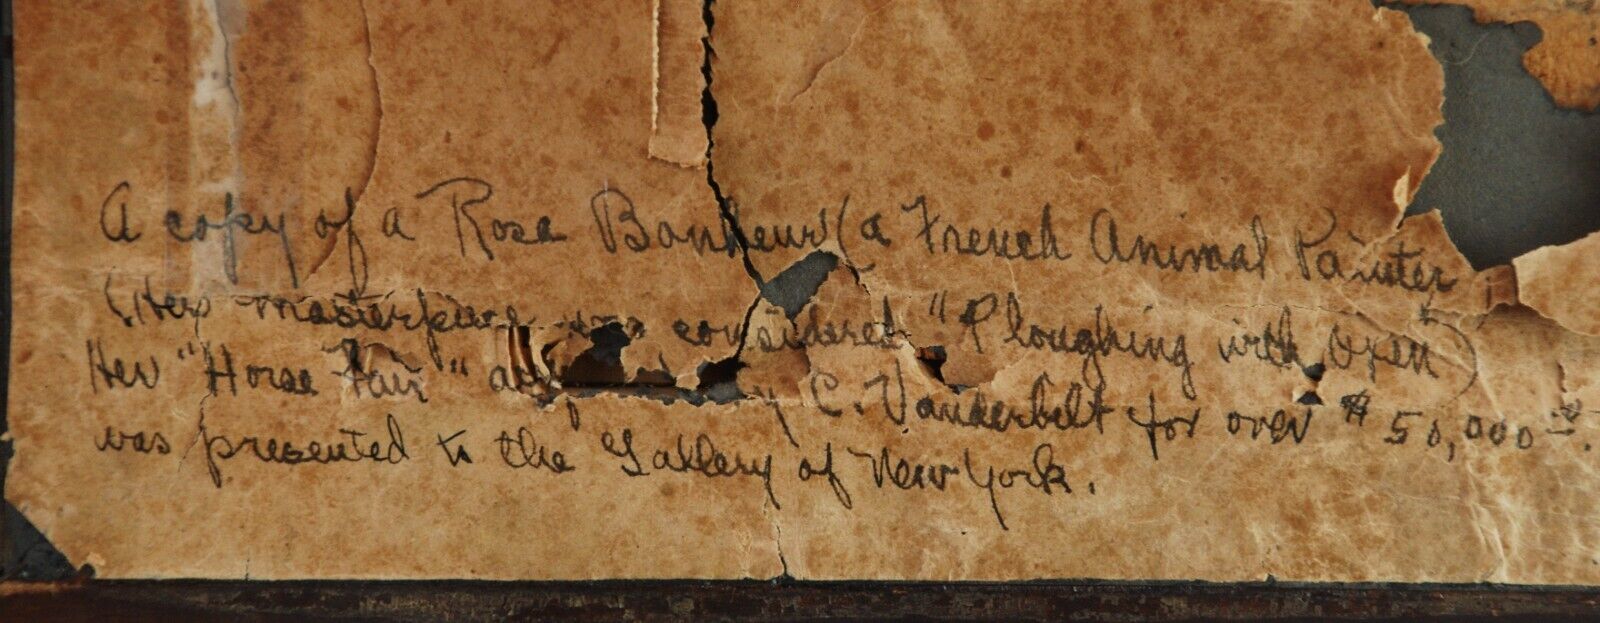 A copy of a Rose Bonheur (a French Animal Painter
(Her masterpiece was considered "Ploughing with Oxen")
Her "Horse Fair" by C. Vanderbilt for over $50,000
was presented to the Gallery of New York.